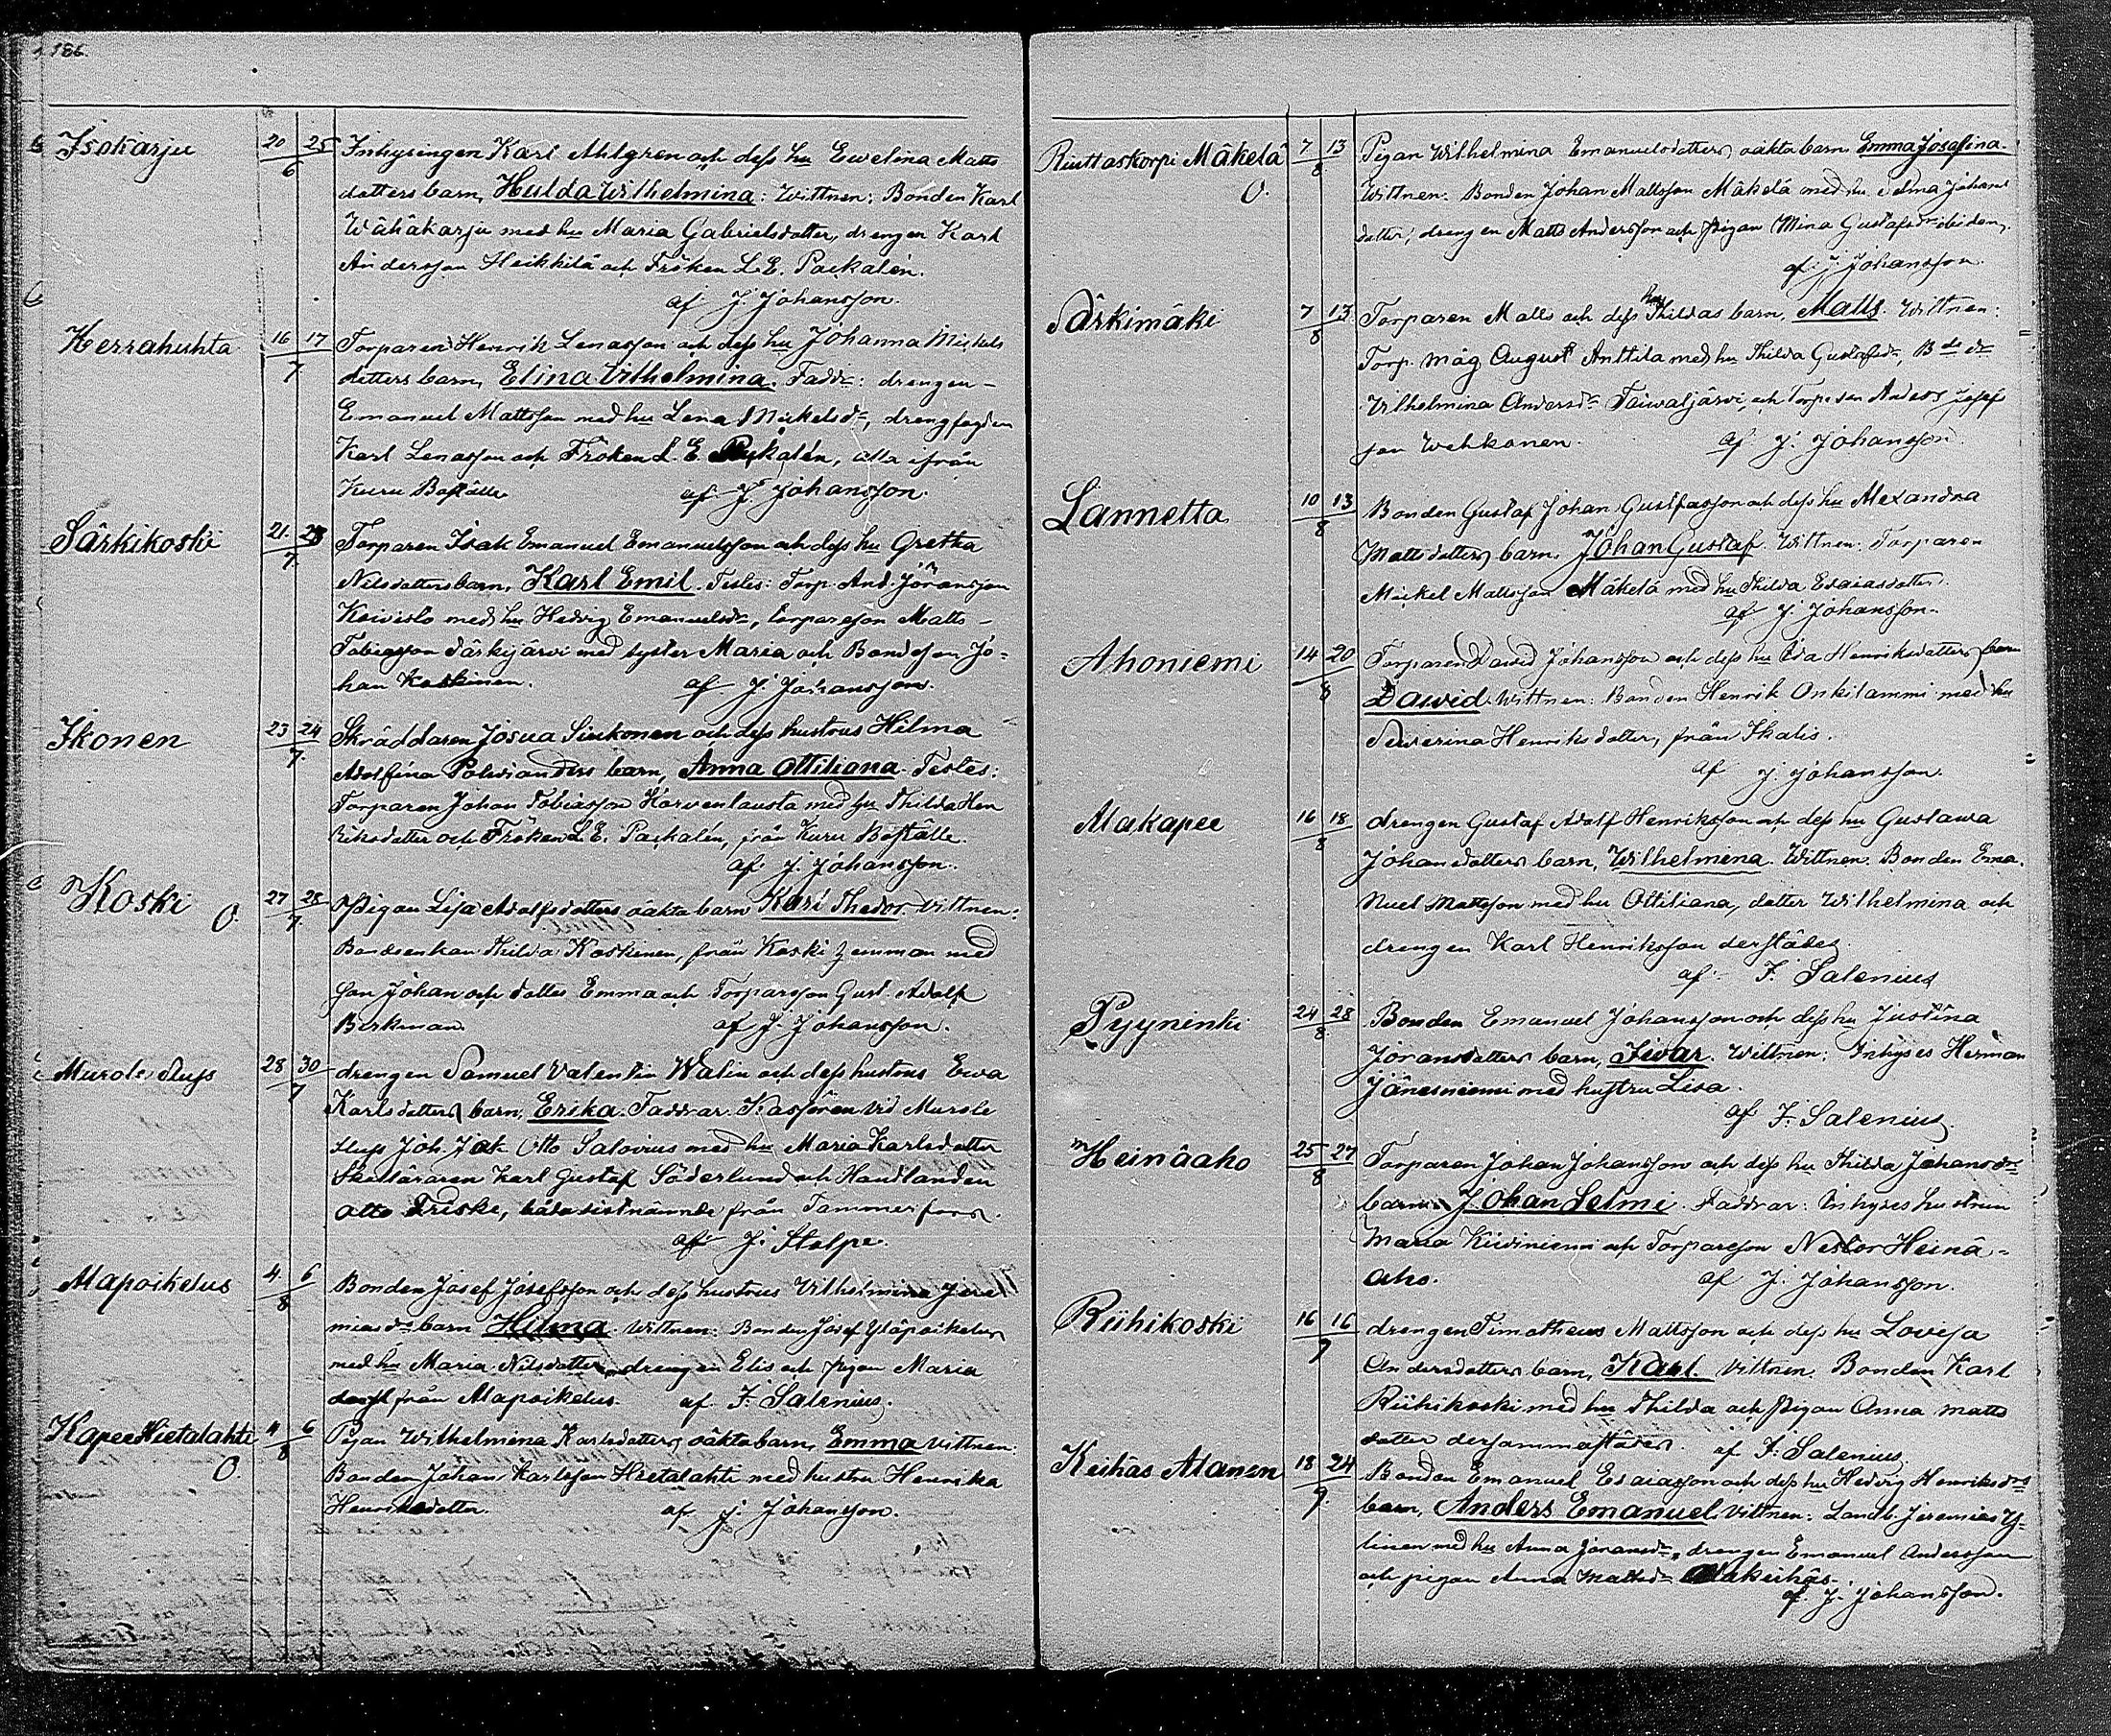 186.
Isokarju 20 25 Inhysingen Karl Ahlgren och dess hu Ewelina Matts
6
dotters barn, Hulda Wilhelmina: Wittnen: Bonden Karl
Wähäkarju med hu Maria Gabrielsdotter, drengen Karl
Andersson Heikkilä och Fröken L. E. Packalén.
af J. Johansson.
Kerrahuhta 16 17 Torparen Henrik Lenasson och dess hu Johanna Mickels
7
dotters barn, Elina Vilhelmina. Faddr: drengen
Emanuel Mattsson med hu Lena Mickelsdr, drengfogden
Karl Lenasson och Fröken L. E. Packalén, alla ifrån
Kuru Boställe af J. Johansson.
Särkikoski 21. 23 Torparen Isak Emanuel Emanuelsson och dess hu Gretha
7.
Nilsdotters barn, Karl Emil. Testes: Torp. And. Jöransson
Koivisto med hu Hedvig Emanuelsdr, torpareson Matts
Tobiasson Särkijärvi med syster Maria och Bondeson Jo-
han Koskinen. af J. Johansson.
Ikonen 23 24 Skräddaren Josua Siukonen och dess hustrus Hilma
7.
Adolfina Polvianders barn, Anna Ottiliana. Testes:
Torparen Johan Tobiasson Korventausta med hu Thilda Hen
riksdotter och Fröken L. E. Packalén, från Kuru Boställe.
af J. Johansson.
Koski O. 27 28 Pigan Lisa Adolfsdotters oäkta barn Karl Thedor. Vittnen:
7.
Bondeenkan Thilda Koskinen, från Koski hemman med
son Johan och dotter Emma och Torparson Gust. Adolf
Birkman. af J. Johansson.
Murole Sluss 28 30 drengen Samuel Valentin Walin och dess hustrus Ewa
7
Karlsdotters barn, Erika. Faddrar. Kassören vid Murole
Sluss Joh. Jak Otto Salovius med hu Maria Karlsdotter
Karl Gustaf Söderlund och Handlanden
Otto Friske, båda sistnämnde från Tammerfors.
af J. Stolpe.
Alapoikelus 4. 6 Bonden Josef Josefsson och dess hustrus Vilhelmina Jere
8
miasdr barn Hilma. Wittnen: Bonden Josef Yläpoikelus
med hu Maria Nilsdotter, drengen Elis och pigan Maria
från Alapoikelus. af F. Salenius.
Kapee Hietalahti O. 4 6 Pigan Wilhelmina Karlsdotters oäkta barn, Emma vittnen:
8
Bonden Johan Karlsson Hietalahti med hustru Henrika
Henriksdotter. af J. Johansson.
Riuttaskorpi Mäkelä O. 7 13 Pigan Wilhelmina Emanuelsdotters oäkta barn Emma Josefina.
8
Wittnen. Bonden Johan Mattsson Mäkelä med hu Johans
dotter, drengen Matts Andersson och pigan Mina Gustafsdr ibidem.
af J. Johansson.
Särkimäki 7 13 Torparen Matts och dess hu Thildas barn, Matts. Wittnen:
8
Torp. måg August Anttila med hu Thilda Gustafsdr, Bde dr
Vilhelmina Andersdr Taivaljärvi, och Torparen Anders Josef
son Wehkanen. af J. Johansson.
Lannetta 10 13 Bonden Gustaf Johan Gustfasson och dess hu Alexandra
8
Mattsdotters barn, Johan Gustaf. Wittnen: Torparen
Mickel Mattsson Mäkelä med hu Thilda Esaiasdotter.
af J. Johansson.
Ahoniemi 14 20 Torparen David Johansson och dess hu Eva Henriksdotters barn
8
Dawid. Wittnen: Bonden Henrik Onkilammi med hu
Severina Henriksdotter, från Ikalis.
af J. Johansson.
Alakapee 16 18 drengen Gustaf Adolf Henriksson och dess hu Gustawa
8
Johansdotters barn, Wilhelmina. Wittnen. Bonden Ema.
nuel Mattsson med hu Ottiliana, dotter Wilhelmina och
drengen Karl Henriksson derstädes.
af F. Salenius
Pyyninki 24 28 Bonden Emanuel Johansson och dess hu Justina
8
Joransdotters barn, Iivar. Wittnen: Inhyses Herman
Jäneiniemi med hustru Lisa.
af F. Salenius.
Heinäaho 25 27 Torparen Johan Johansson och dess hu Thilda Johansdrs
8
barn, Johan Selmi. Faddrar: Inhyses hustrun
Maria Kiviniemi och Torpareson Nestor Heinä-
aho. af J. Johansson.
Riihikoski 16 16 drengen Timotheus Mattsson och dess hu Lovisa
9
Andersdotters barn, Karl. Vittnen. Bonden Karl
Riihikoski med hu Thilda och pigan Anna Matts
dotter dersammastädes. af F. Salenius
Keihäs Alanen 18 24 Bonden Emanuel Esaiasson och dess hu Hedvig Henriksdrs
9.
barn, Anders Emanuel. Vittnen: Landb. Jeremias Y-
linen med hu Anna Joransdr, drengen Emanuel Andersson
och pigan Anna Mattsdr Alakeihäs.
af. J. Johansson.